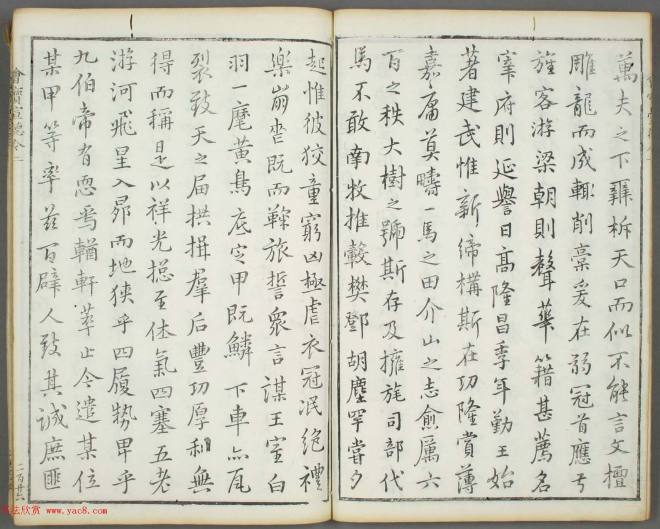 萬夫之下辯析天口而似不能言文擅
雕龍而成輒削稾爰在弱冠首應弓
旌客游梁朝則聲華籍甚薦名
宰府則延譽日高隆昌季年勤王始
著建武惟新締構斯在功隆賞薄
嘉庸莫疇一馬之田介山之志愈厲六
百之秩大樹之號斯存及擁旄司部代
馬不敢南牧推轂樊鄧胡塵罕嘗夕
起惟彼狡童窮凶極虐衣冠泯絕禮
樂崩喪既而鞠旅誓眾言謀王室白
羽一麾黃鳥底定甲既鱗下車亦瓦
裂致天之屆拱揖羣后豐功厚利無
得而稱是以祥光摠至休氣四塞五老
游河飛星入昴而地狹乎四履勢卑乎
九伯帝有恧焉輶軒萃止今遣某位
某甲等率茲百辟人致其誠庶匪
二百廿六
書法欣赏 www.yac8.com